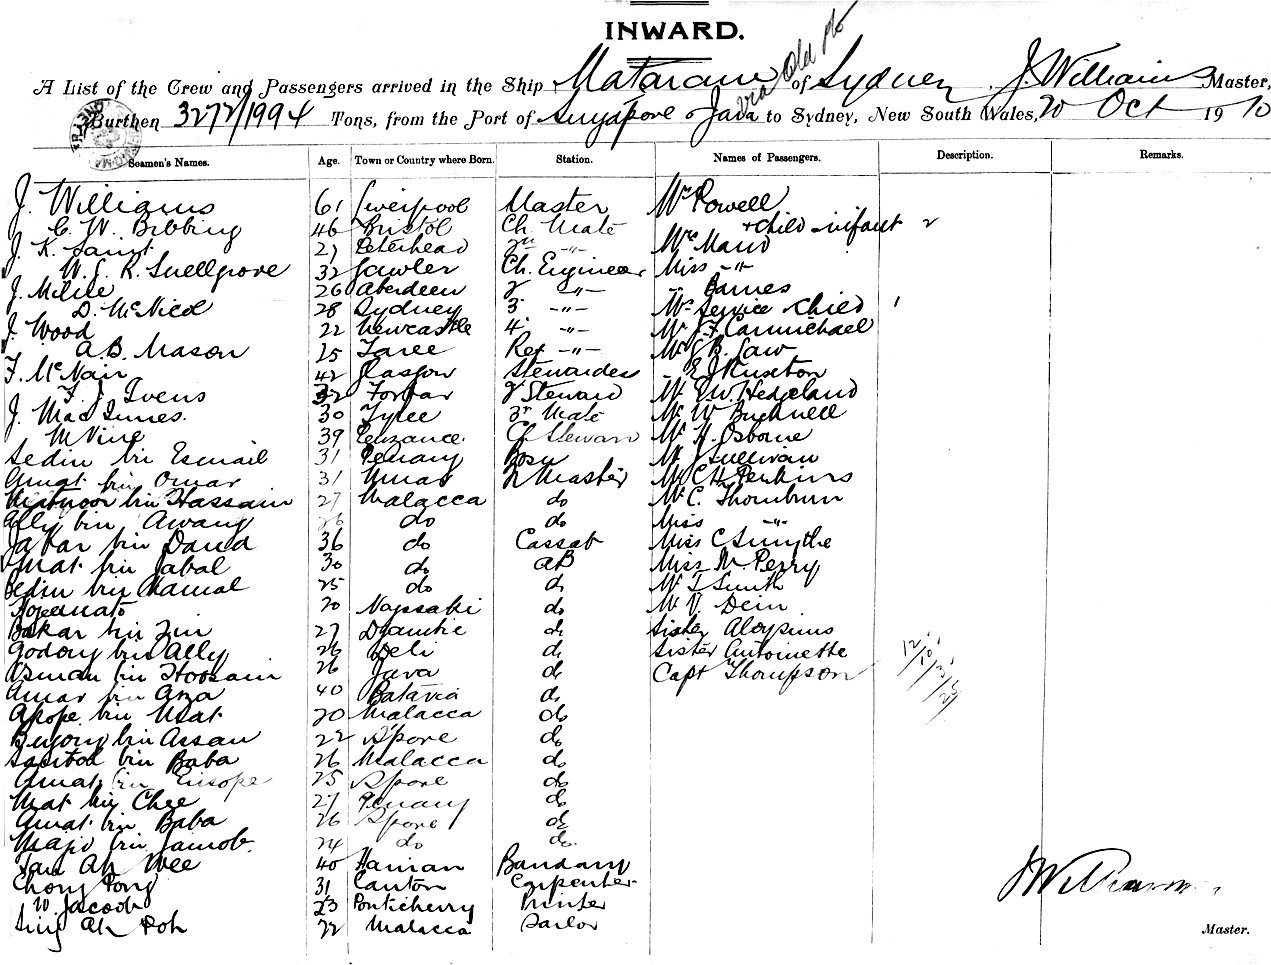 INWARD.
A List of the Crew and Passengers arrived in the Ship Mataram of Sydney, J. Williams Master,
via Old
Burthen 3272/1994 Tons, from the Port of Singapore & Java to Sydney, New South Wales, 20 Oct 1910
Seamen's Names. Age. Town or Country where Born. Station. Names of Passengers. Description. Remarks.
J. Williams 61 Liverpool Master Mrs Powell
C. W. Bibbing 46 Bristol Ch. Mate + child infant 2
J. K. Saint 27 Peterhead 2nd -"- Mrs Mand
W. J. R. Snellgrove 32 Gawler Ch. Engineer Miss -"-
J. Milne 26 Aberdeen 2 -"- " James
D. McNicol 28 Sydney 3 -"- Mrs Service child 1
J. Wood 22 Newcastle 4 -"- Mr J. F. Carmichael
A. B. Mason 25 Taree Ref -"- Mr J. B. Law
F. McNair 42 Glasgow Stewardess E J Ruxton
F. J. Ivens 32 Forfar 2 Steward Mr E. W. Hedgeland
J. MacInnes 30 Tyree 3rd Mate Mr W Bucknell
M Vine 39 Penzance Cf Steward Mr H. Osborne
Sedin bin Esmail 31 Penang Bosn Mr J Sullivan
Amat bin Omar 31 Umas Qr Master Mr C H Perkins
bin Hassain 27 Malacca do Mr C. Thornburn
Ally bin Awang 26 do do Miss -"-
Jabar bin Daud 36 do Cassab Miss C Smythe
Amat bin Jabal 30 do AB Miss M. Perry
Sedin bin Kamal 25 do do Mr T Smith
20 Nagsaki do Mr V. Dein
Bakar bin Zin 27 do Sister Aloysius
Godong bin Ally 26 Deli do Sister Antoinette
Osman bin Hoosain 26 Java do Capt Thompson
Amar bin Aza 40 Batavia do
Apope bin Usat 20 Malacca do
Buyong bin Assan 22 S'pore do
bin Baba 26 Malacca do
Amat bin Eusope 25 S'pore do
Mat bin Chee 27 Penang do
Amat bin Baba 26 S'pore do
bin 24 do do
Tan Ah Wee 40 Hainan Bandary
Chong Pong 31 Canton Carpenter
W Jacob 23 Pontcherry Winter
Ah Poh 22 Malacca Sailor
12/10/3/25
J Williams
Master.